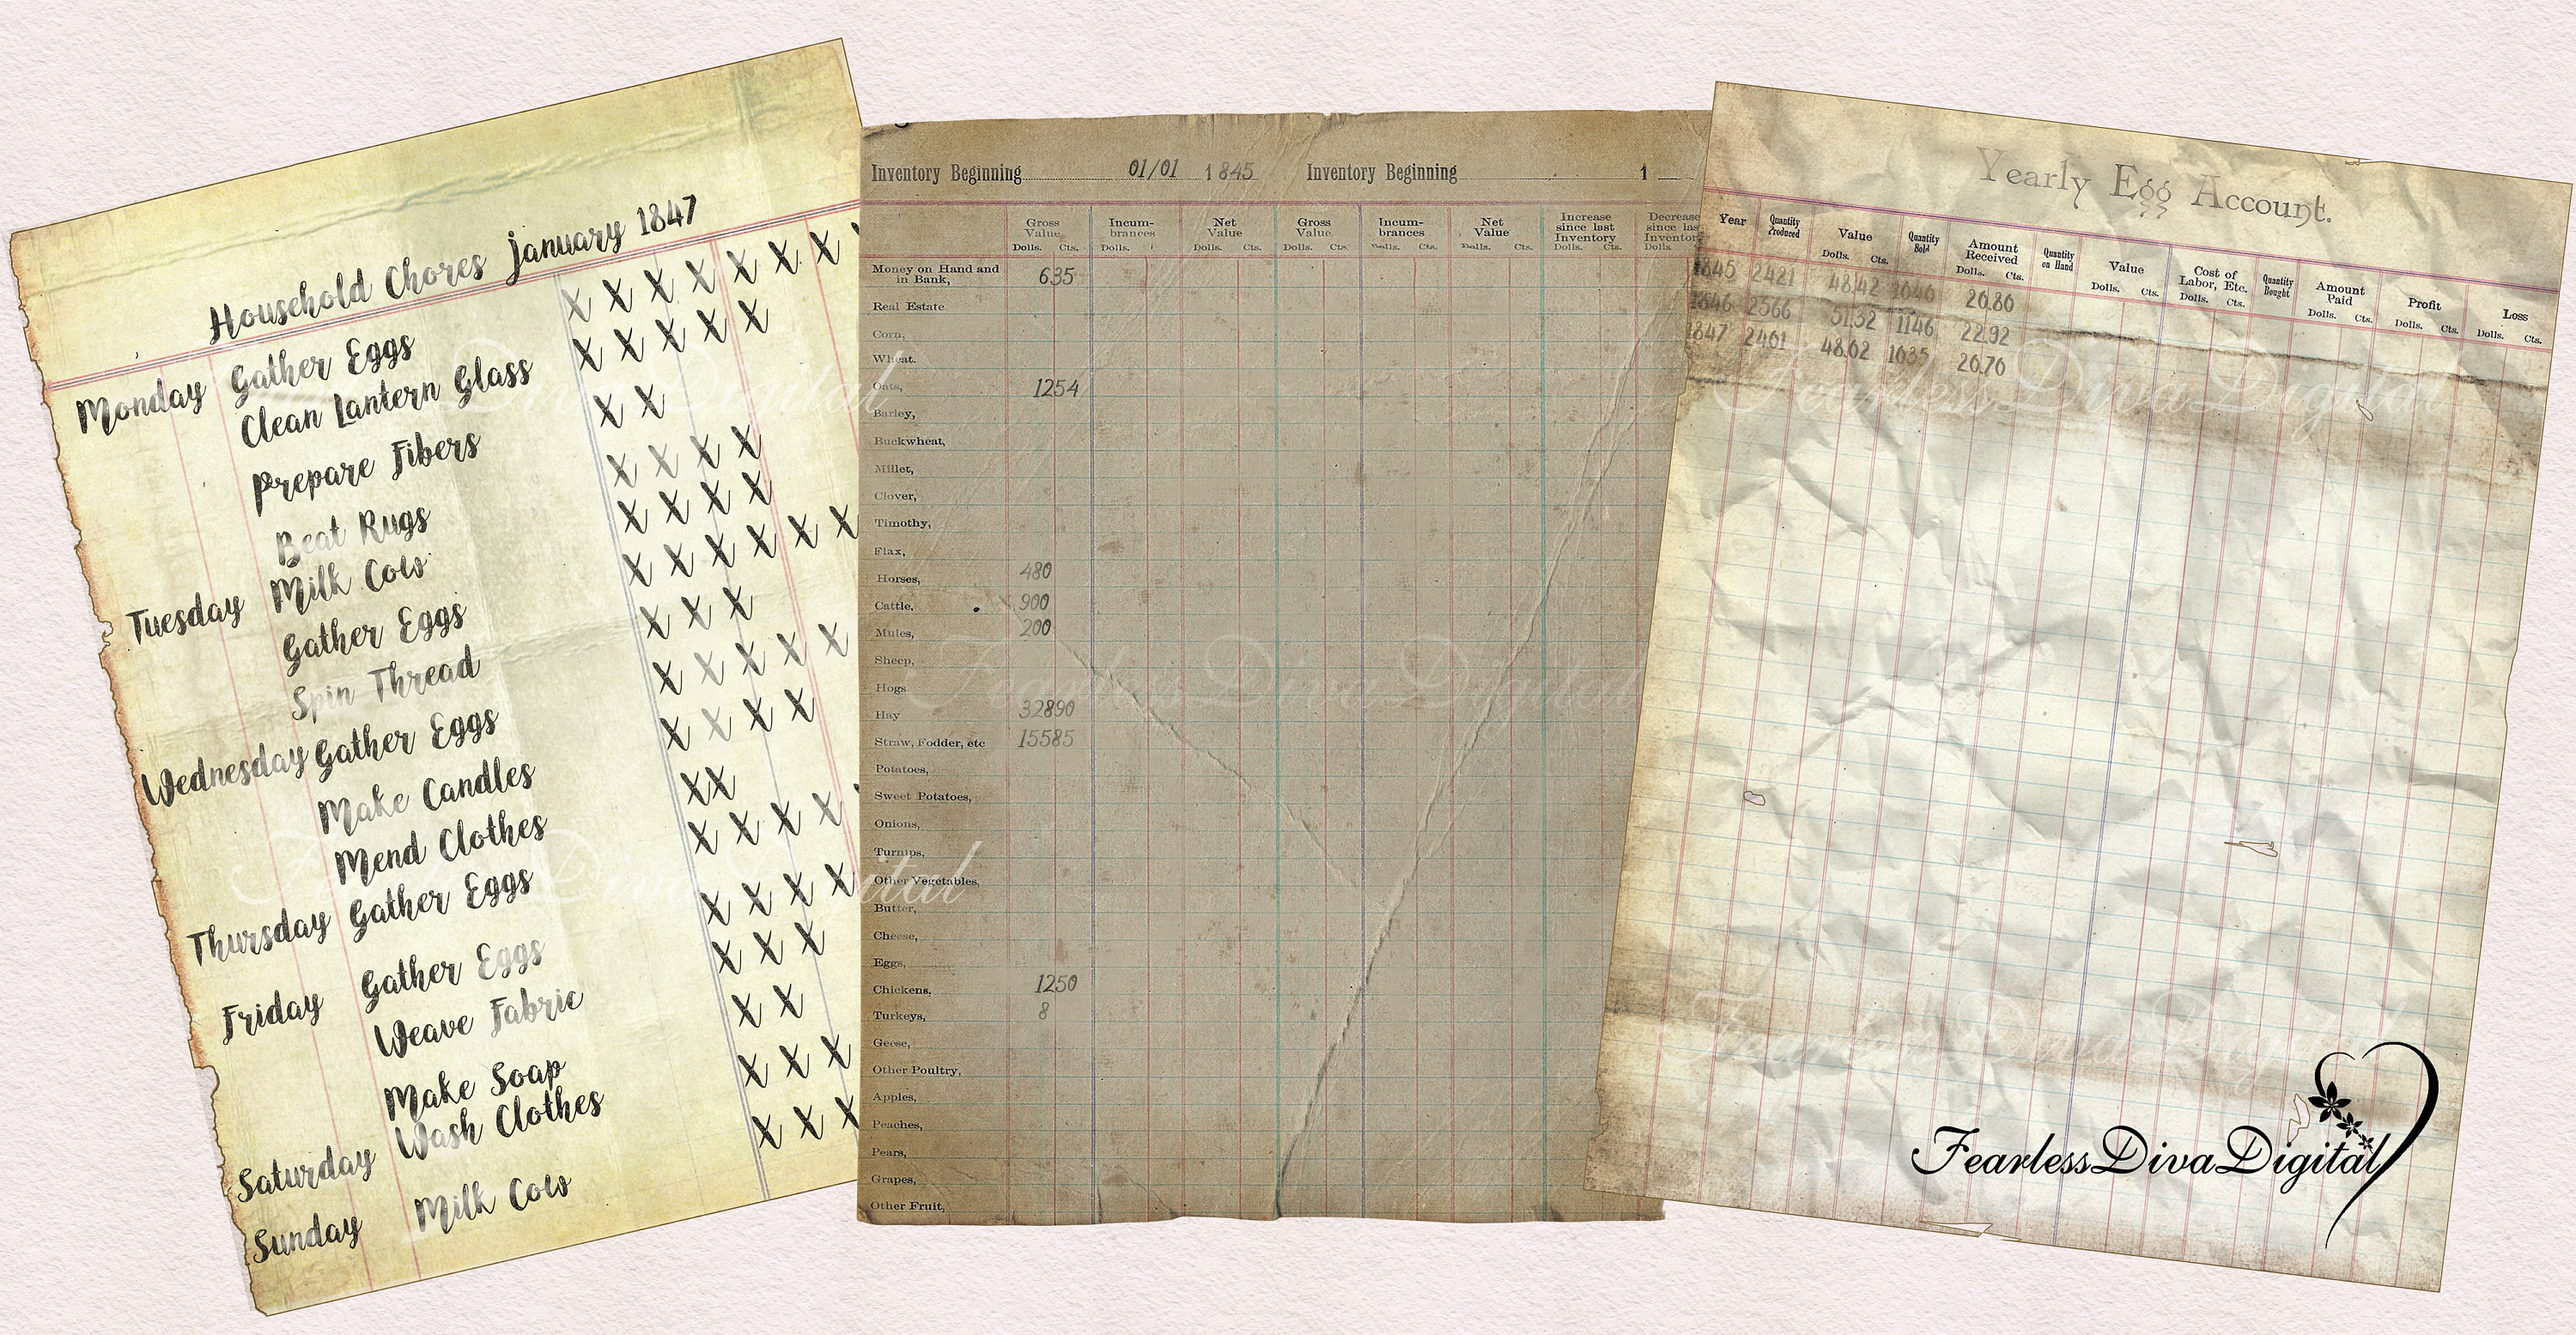 Household Chores January 1847
Monday Gather Eggs X X X X X X
Clean Lantern Glass X X X X X
Prepare Fibers X X
Beat Rugs X X X X
Tuesday Milk Cow X X X X
Gather Eggs X X X X X X
Spin Thread X X X
Wednesday Gather Eggs X X X X X
Make Candles X X X X
Mend Clothes XX
Thursday Gather Eggs X X X X
Friday Gather Eggs X X X X
Weave Fabric X X X
Make Soap X X
Saturday Wash Clothes X X X
Sunday Milk Cow X X X
Inventory Beginning 01/01 1845 Inventory Beginning 1
Gross Value Incum- brances Net Value Gross Value Incum- brances Net Value Increase since last Inventory Decrease since las Inventory
Dolls. Cts. Dolls. Dolls. Cts. Dolls. Cts. Dolls. Cts. Dolls. Cts. Dolls. Cts. Dolls.
Money on Hand and
in Bank, 635
Real Estate
Corn,
Wheat.
Oats, 1254
Barley,
Buckwheat,
Millet,
Clover,
Timothy,
Flax,
Horses, 480
Cattle, 900
Mules, 200
Sheep,
Hogs
Hay 32890
Straw, Fodder, etc 15585
Potatoes,
Sweet Potatoes,
Onions,
Turnips,
Other Vegetables,
Butter,
Cheese,
Eggs,
Chickens, 1250
Turkeys, 8
Geese,
Other Poultry,
Apples,
Peaches,
Pears,
Grapes,
Other Fruit,
Yearly Egg Account.
Year Quantity Produced Value Quantity Sold Amount Received Quantity on Hand Value Cost of Labor, Etc. Quantity Bought Amount Paid Profit Loss
Dolls. Cts. Dolls. Cts. Dolls. Cts. Dolls. Cts. Dolls. Cts. Dolls. Cts. Dolls. Cts.
1845 2421 48.42 1040 20.80
1846 2566 51.32 1146 22.92
1847 2401 48.02 1035 20.70
FearlessDivaDigital
FearlessDivaDigital
FearlessDivaDigital